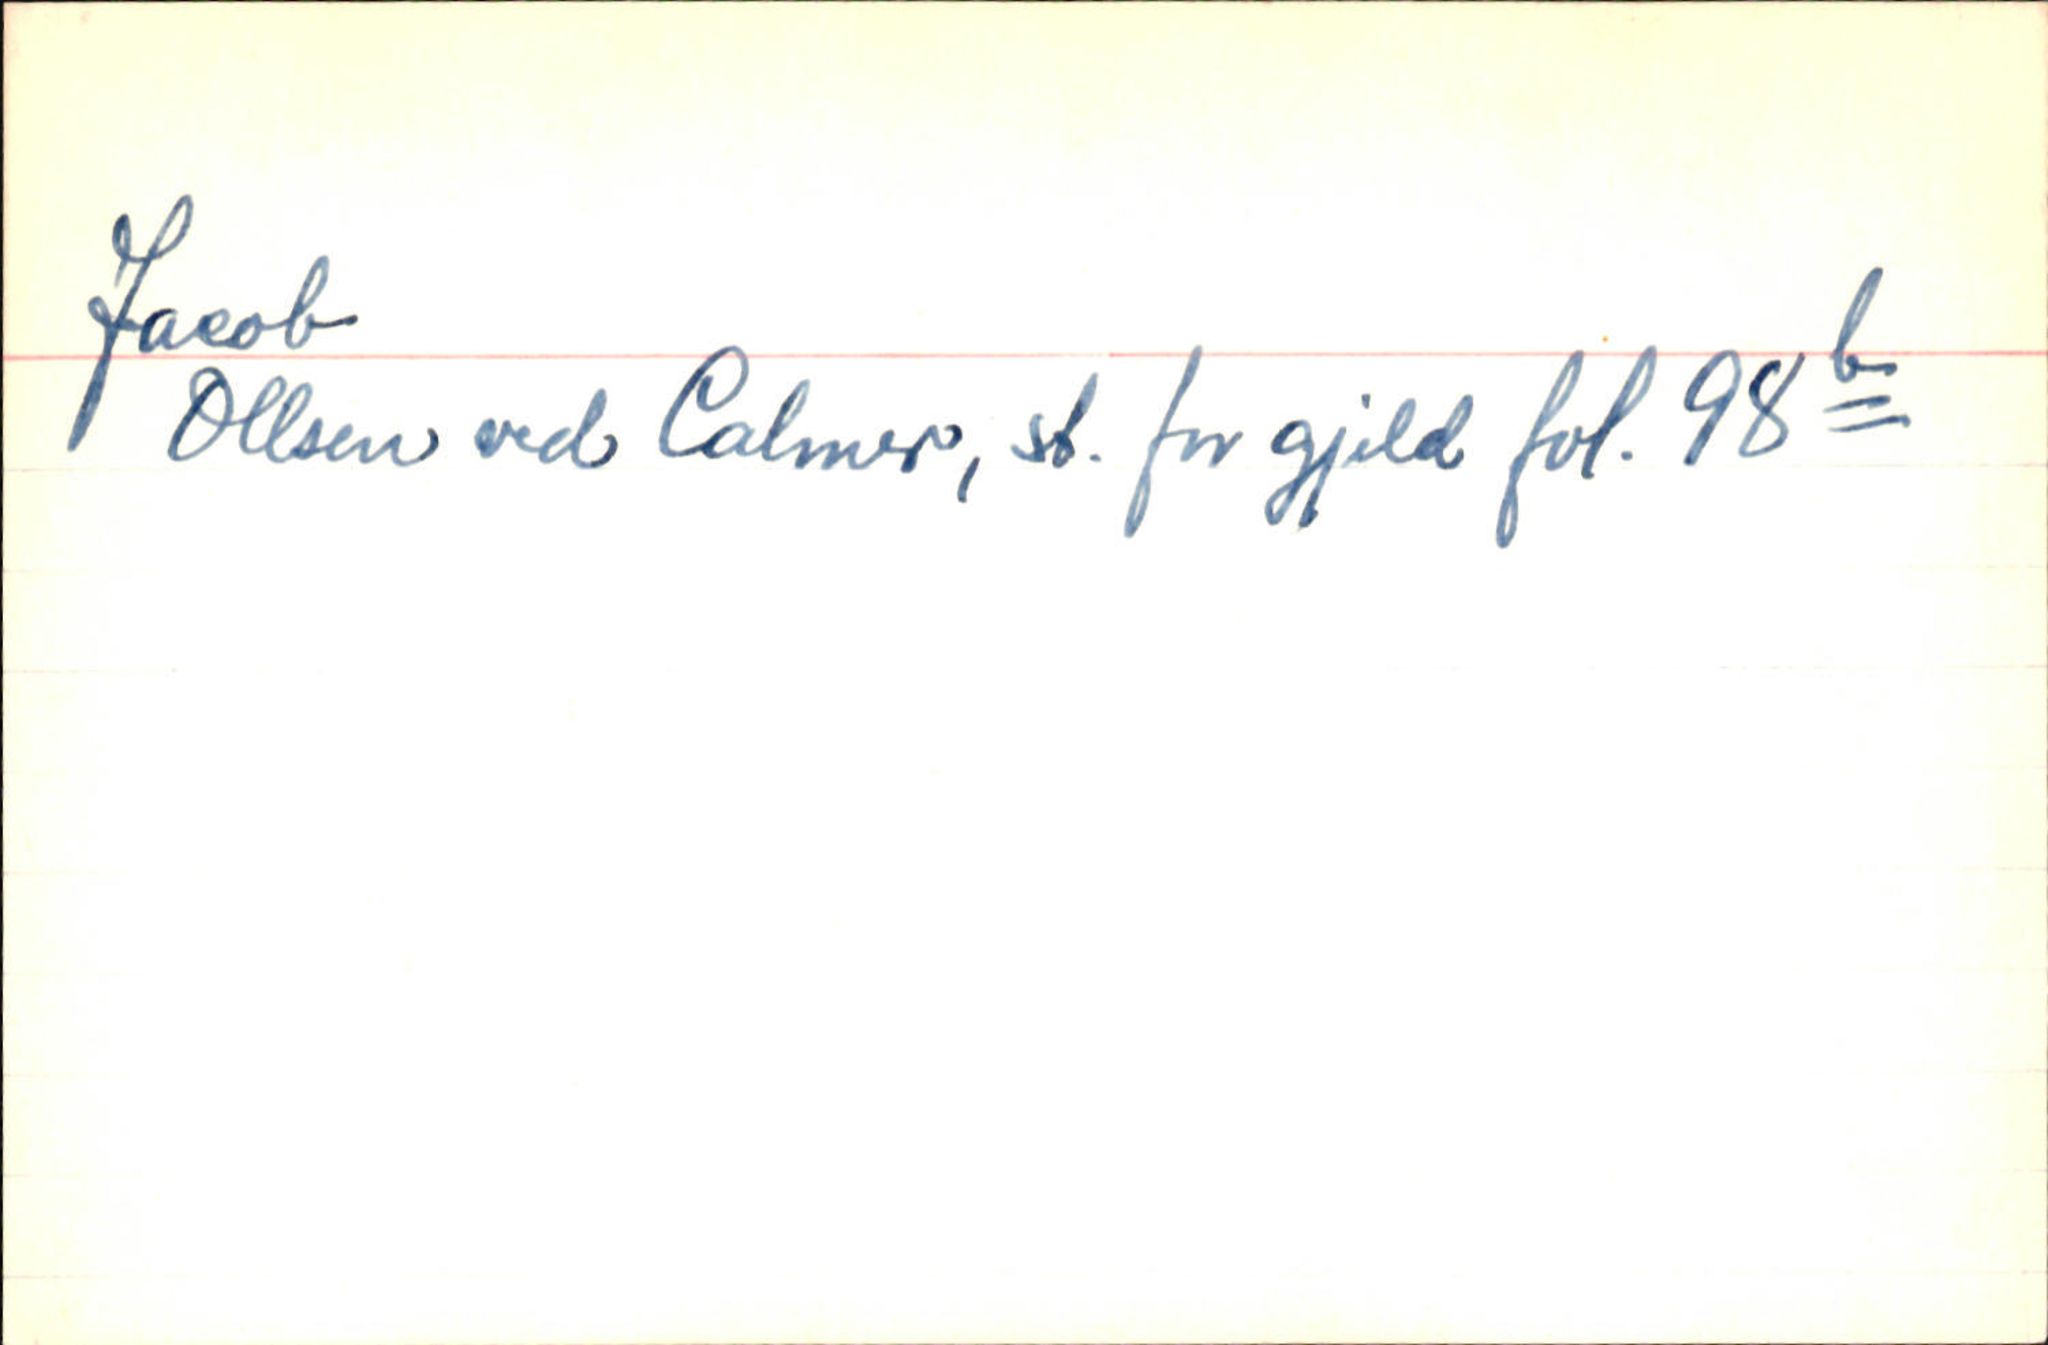 Jacob
Ollsen ved Calmer, st. for gjeld fol. 98b